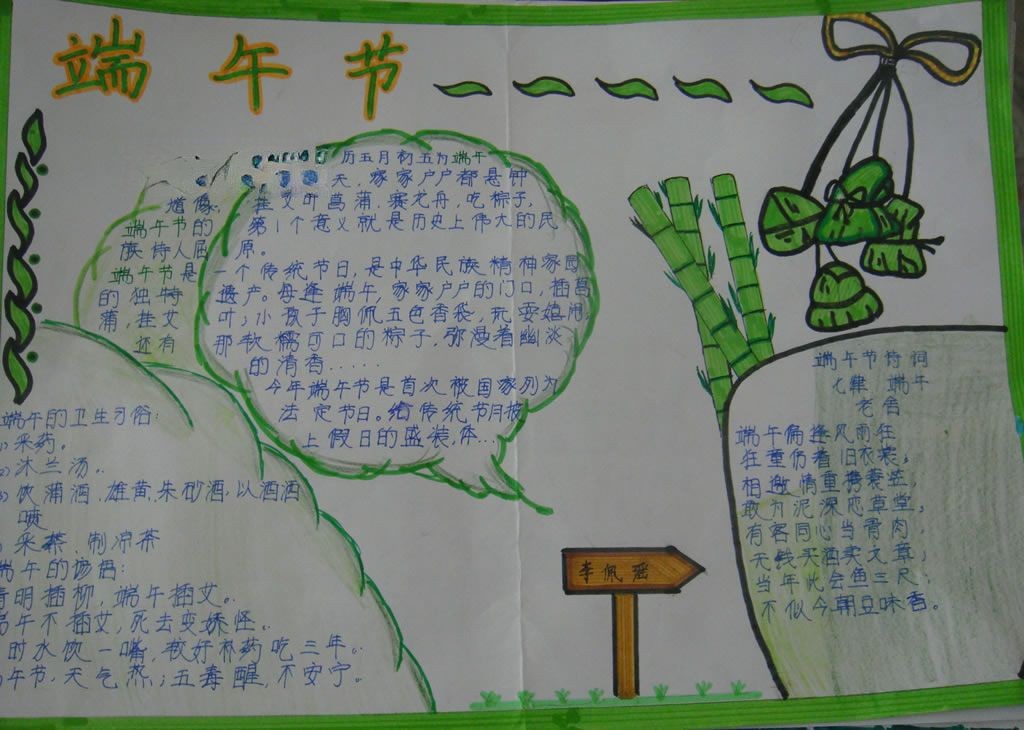 端午节
历五月初五为端午
天，家家户户都悬钟
馗像，挂艾叶菖蒲，赛龙舟，吃粽子，
端午节的 第1个意义就是历史上伟大的民
族诗人屈原。
端午节是一个传统节日，是中华民族精神家园
的独特遗产。每逢端午，家家户户的门口，插菖
蒲，挂艾叶；小孩子胸佩五色香袋，玩耍嬉闹，
还有那软糯可口的粽子，弥漫着幽淡
的清香……
今年端午节是首次被国家列为
法定节日。给传统节月披
上假日的盛装，体…
端午的卫生习俗：
采药。
沐兰汤。
饮蒲酒，雄黄，朱砂酒，以酒洒
喷
采茶，制凉茶
端午的谚语：
清明插柳，端午插艾。
端午不插艾，死去变妖怪。
时水饮一嘴，较好补药吃三年。
午节，天气热；五毒醒，不安宁。
李佩瑶
端午节诗词
七律 端午
老舍
端午偏逢风雨狂，
狂童仍着旧衣裳；
相邀情重携蓑笠，
敢为泥深恋草堂；
有客同心当骨肉，
无钱买酒卖文章；
当年此会鱼三尺，
不似今朝豆味香。